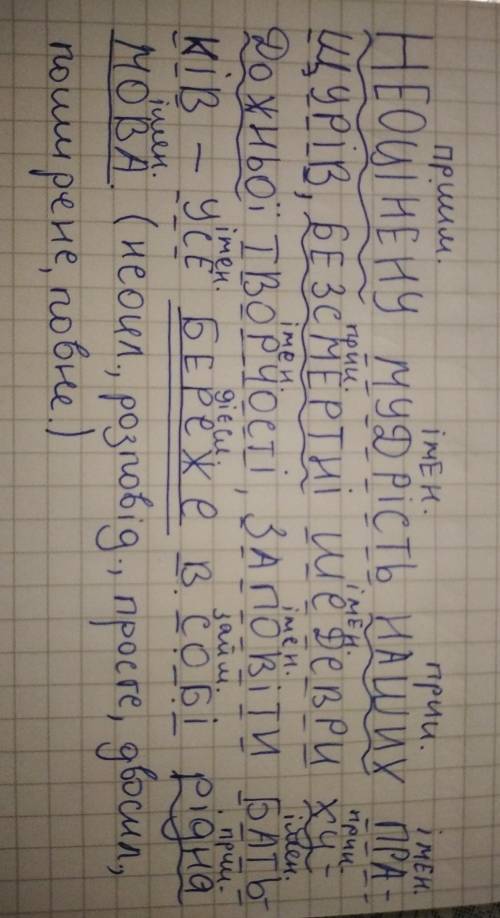 прикм. імен. прий. імен.
НЕОЦІНЕНУ МУДРІСТЬ НАШИХ ПРА-
прий. імен. прий.
ЩУРІВ, БЕЗСМЕРТНІ ШЕДЕВРИ ХУ-
імен. імен. імен.
ДОЖНЬОЇ ТВОРЧОСТІ, ЗАПОВІТИ БАТЬ-
імен. дієсл. займ. прий.
КІВ – УСЕ БЕРЕЖЕ В СОБІ РІДНА
імен.
МОВА. (неокл., розповід., просте, двоскл.,
поширене, повне.)